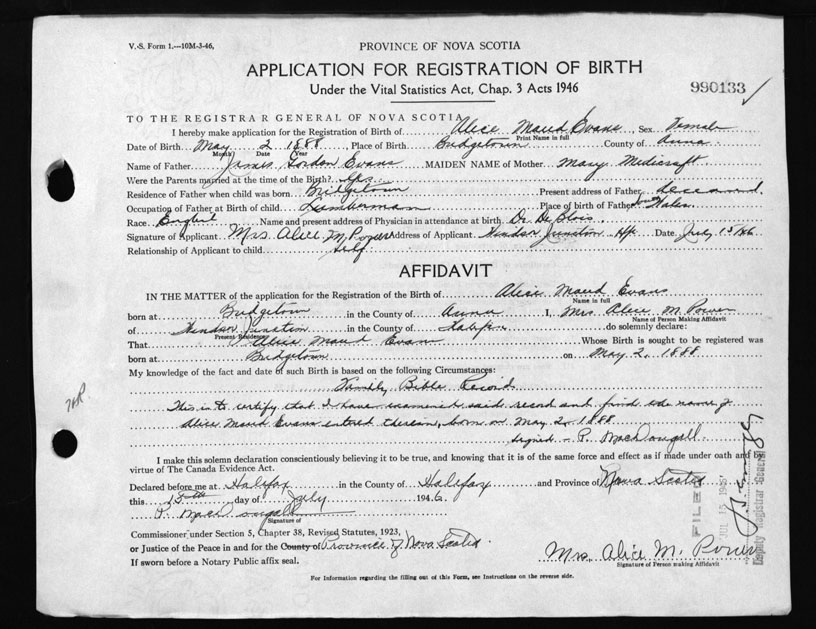 V.-S. Form 1.—10M-3-46,
PROVINCE OF NOVA SCOTIA
APPLICATION FOR REGISTRATION OF BIRTH
Under the Vital Statistics Act, Chap. 3 Acts 1946
990133
TO THE REGISTRAR GENERAL OF NOVA SCOTIA
I hereby make application for the Registration of Birth of Alice Maud Evans, Sex Female
Print Name in full
Date of Birth May 2 1888, Place of Birth Bridgetown County of Anna
Month Date Year
Name of Father James Gordon Evans MAIDEN NAME of Mother Mary Medicraft
Were the Parents married at the time of the Birth? Yes
Residence of Father when child was born Bridgetown Present address of Father deceased.
Occupation of Father at Birth of child Lumberman Place of birth of Father Wales
Race English Name and present address of Physician in attendance at birth Dr. De Blois.
Signature of Applicant Mrs. Alice M Power Address of Applicant Windsor Junction Hfx Date July 15/46
Relationship of Applicant to child self
AFFIDAVIT
IN THE MATTER of the application for the Registration of Birth of Alice Maud Evans
Name in full
born at Bridgetown in the County of Anna I, Mrs. Alice M. Power
Name of Person Making Affidavit
of Windsor Junction in the County of Halifax do solemnly declare:
Present Residence
That Alice Maud Evans Whose Birth is sought to be registered was
born at Bridgetown on May 2, 1888
My knowledge of the fact and date of such Birth is based on the following Circumstances:
Family Bible Record
This is to certify that I have examined said record and find the name of
Alice Maud Evans entered therein, born on May 2, 1888.
Signed - R. MacDougall.
I make this solemn declaration conscientiously believing it to be true, and knowing that it is of the same force and effect as if made under oath and by
virtue of The Canada Evidence Act.
Declared before me at Halifax in the County of Halifax and Province of Nova Scotia
this 15th day of July 1946
R. MacDougall
Signature of
Commissioner under Section 5, Chapter 38, Revised Statutes, 1923,
or Justice of the Peace in and for the County of Province of Nova Scotia.
If sworn before a Notary Public affix seal.
Mrs. Alice M. Power
Signature of Person making Affidavit
For Information regarding the filling out of this Form, see Instructions on the reverse side.
FILED
JUL 15 1946
Deputy Registrar General